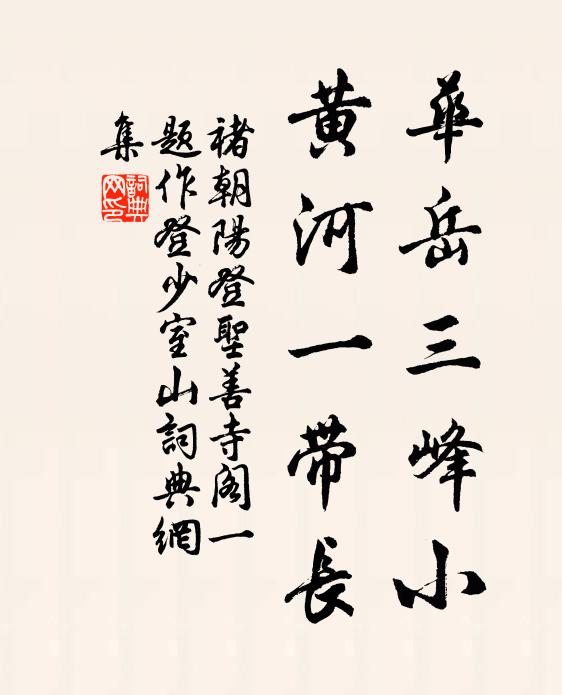 華岳三峰小
黃河一帶長
褚朝陽登聖善寺閣一
題作登少室山詞典網
集
詞典
网印